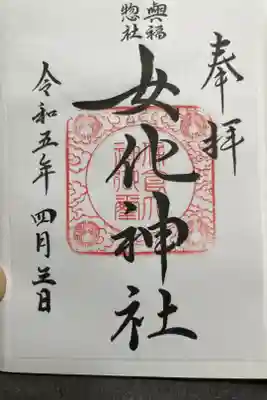 奉拝
興福
惣社
女化神社
令和五年 四月三日